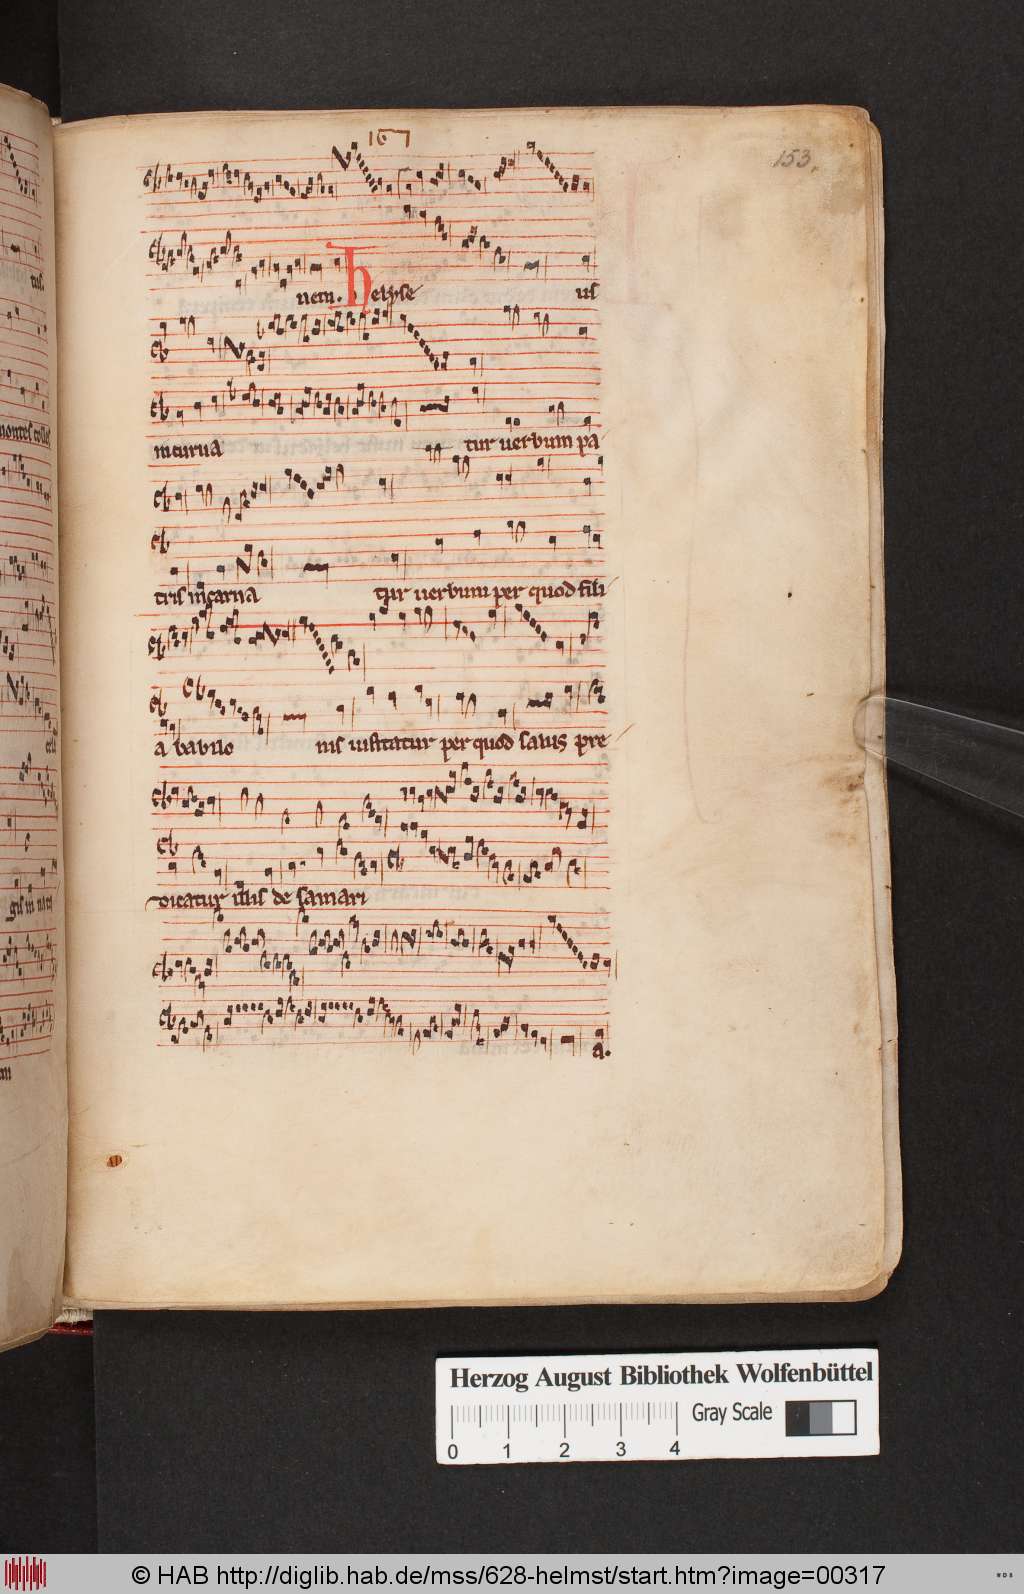 167
153.
uem. helyse us
incurua tur uerbum pa
tris incarna tur uerbum per quod fili
a babilo nis uisitatur per quod saluus pre
dicatur illis de samari
a.
montes colles
gis in
Herzog August Bibliothek Wolfenbüttel
Gray Scale
0 1 2 3 4
© HAB http://diglib.hab.de/mss/628-helmst/start.htm?image=00317